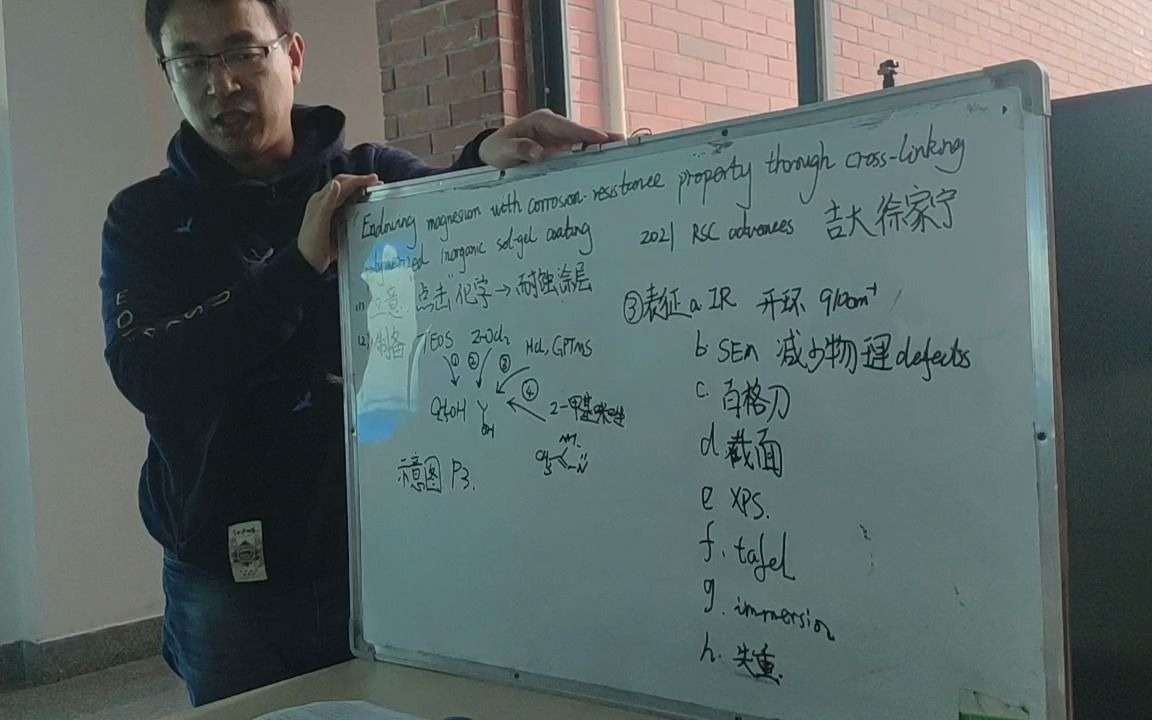 Endowing magnesium with corrosion-resistance property through cross-linking
polymerized inorganic sol-gel coating
2021 RSC advances 吉大 徐家宁
(1) 立意: "点击"化学→耐蚀涂层
(2) 制备 TEOS ZrOCl₂ HCl, GPTMS
① ② ③
④
C₂H₅OH
OH
2-甲基咪唑
NH
CH₃ N
示意图 P3.
③表征 a. IR 开环 910cm⁻¹
b. SEM 减少物理defects
c. 百格刀
d. 截面
e XPS.
f. tafel
g. immersion
h. 失重